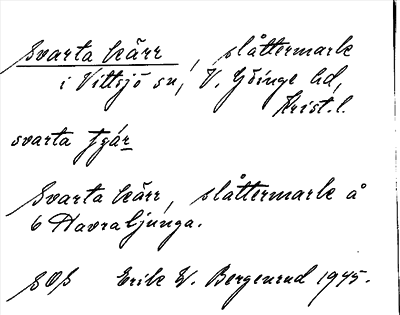 Svarta kärr, slåttermark
i Vittsjö sn, V. Göinge hd,
Krist. l.
svarta
Svarta kärr, slåttermark å
6 Havraljunga.
SOS Erik W. Bergenrud 1945.